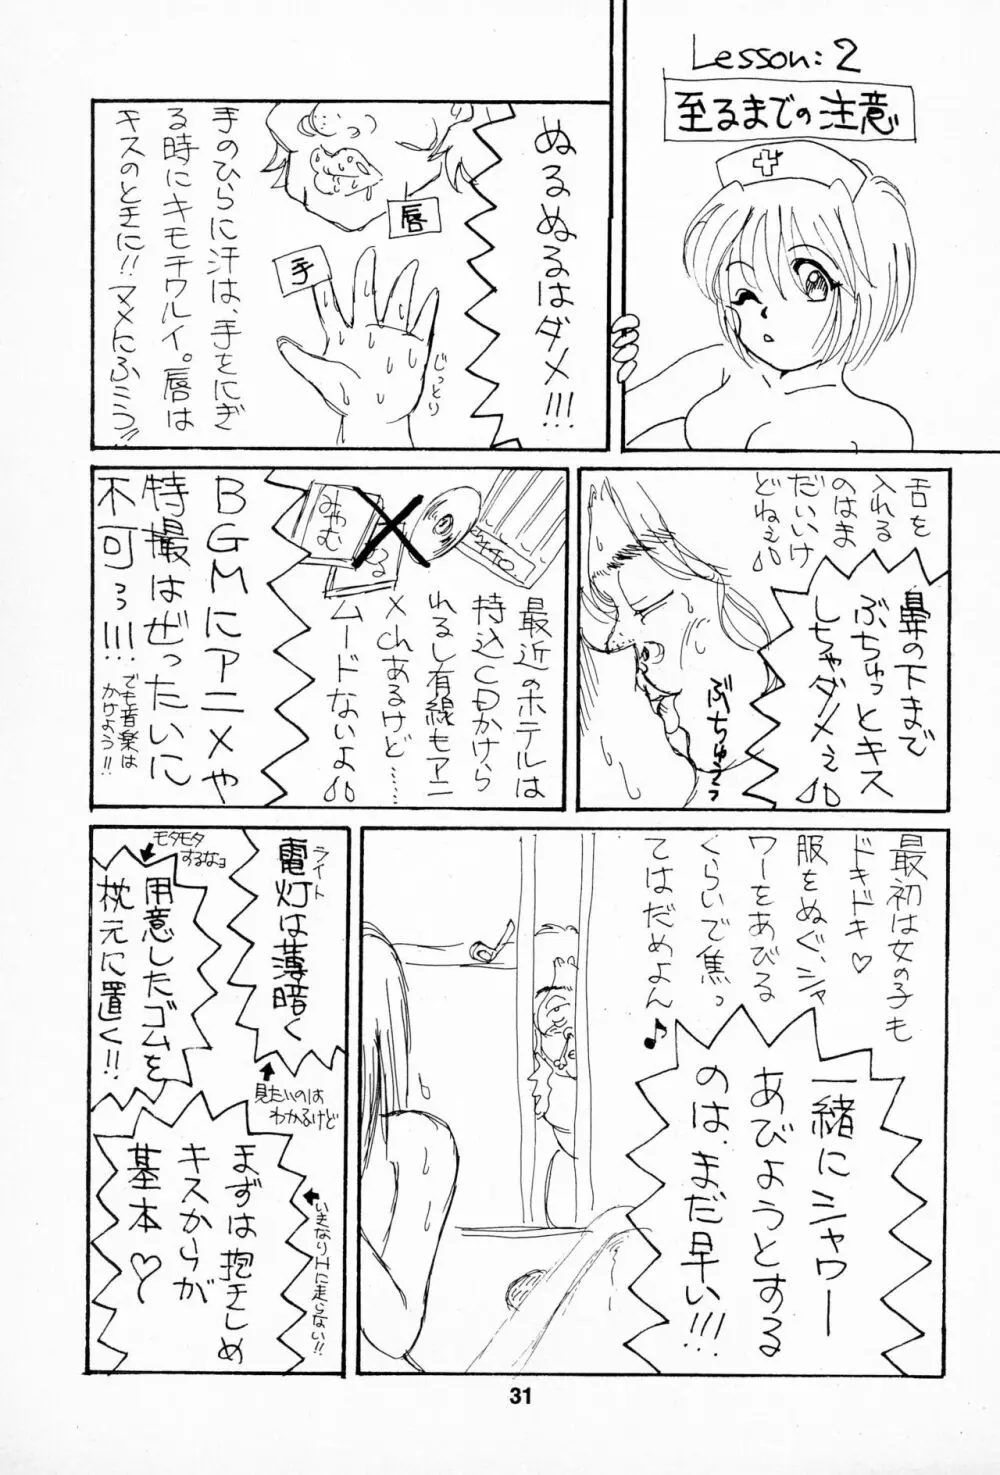 Lesson:2
至るまでの注意
ぬるぬるはダメ!!!
唇
手
じっとり
手のひらに汗は、手をにぎ
る時にキモチワルイ。唇は
キスのときに!!マメにふこう!!
舌を
入れる
のはま
だいいけ
どねぇ
鼻の下まで
ぶちゅっとキス
しちゃダメぇ
ぶちゅうっ
440
みゃむ
最近のホテルは
持込CDかけら
れるし有線もアニ
メchあるけど……
ムードないよ
BGMにアニメや
特撮はぜったいに
不可っ!!!
でも音楽は
かけよう!!
最初は女の子も
ドキドキ♡
服をぬぐ、シャ
ワーをあびる
くらいで焦っ
てはだめよん♪
一緒にシャワー
あびようとする
のは、まだ早い!!!
ライト
電灯は薄暗く
見たいのは
わかるけど
モタモタ
するなョ
用意したゴムを
枕元に置く!!
まずは抱きしめ
キスからが
基本♡
いきなりHに走らない!!
31